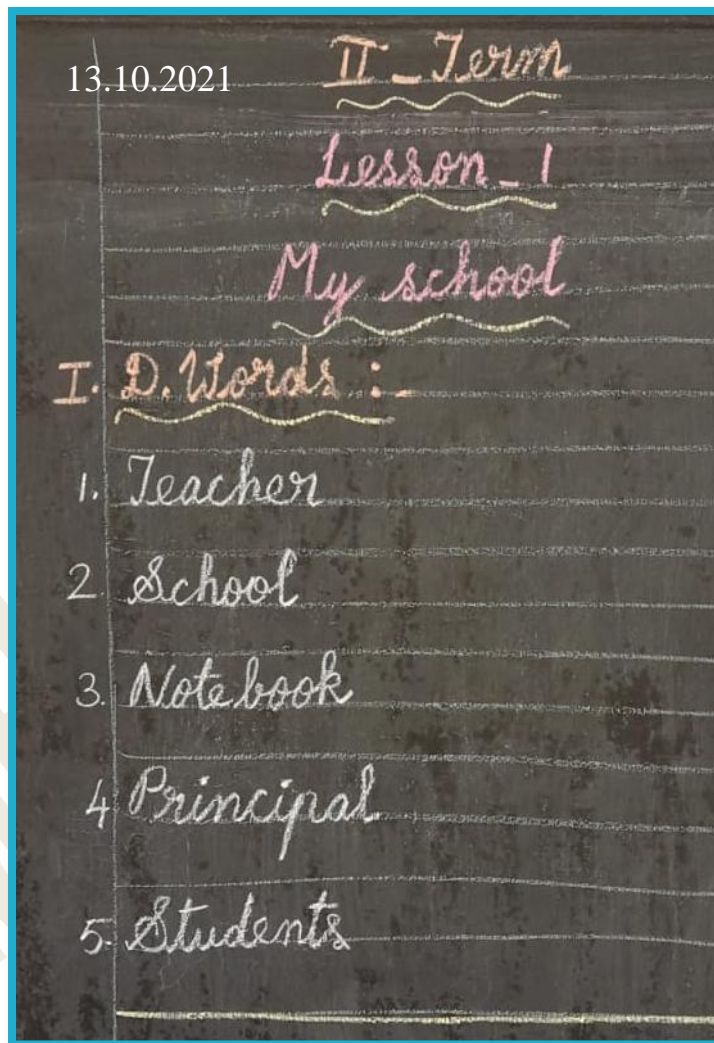 13.10.2021
II - Term
Lesson - 1
My school
I. D. Words :-
1. Teacher
2. School
3. Notebook
4. Principal
5. Students